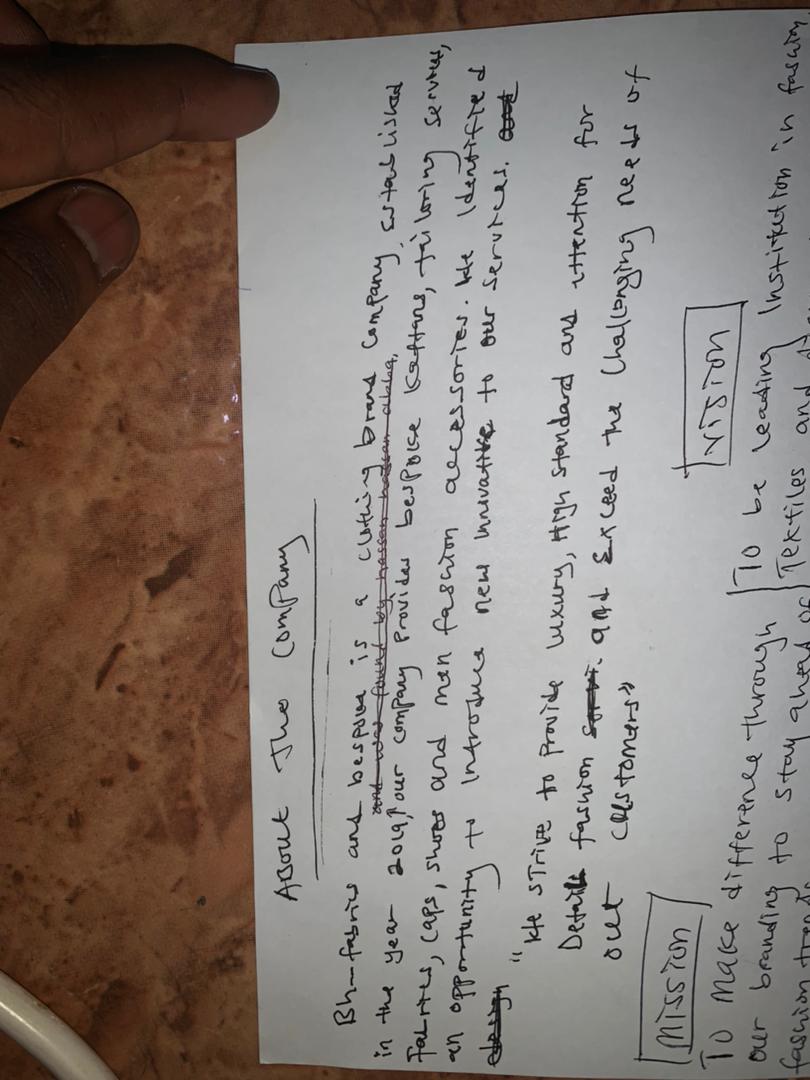 ABOUT The Company
Bh-fabrics and bespoke is a clothing brand company, established
and was found by hassan hassan
in the year 2019, our company provides bespoke Kaftans, tailoring services,
Fabrics, Caps, shoes and men fashion accessories. We Identified
an opportunity to introduce new innovative to our services. and
design
"We strive to provide luxury, High standard and attention for
Details fashion and Exceed the Challenging needs of
out Customers"
Mission
Vision
To make difference through
our branding to stay ahead of
fashion trends
To be leading Institution in fashion
Textiles and